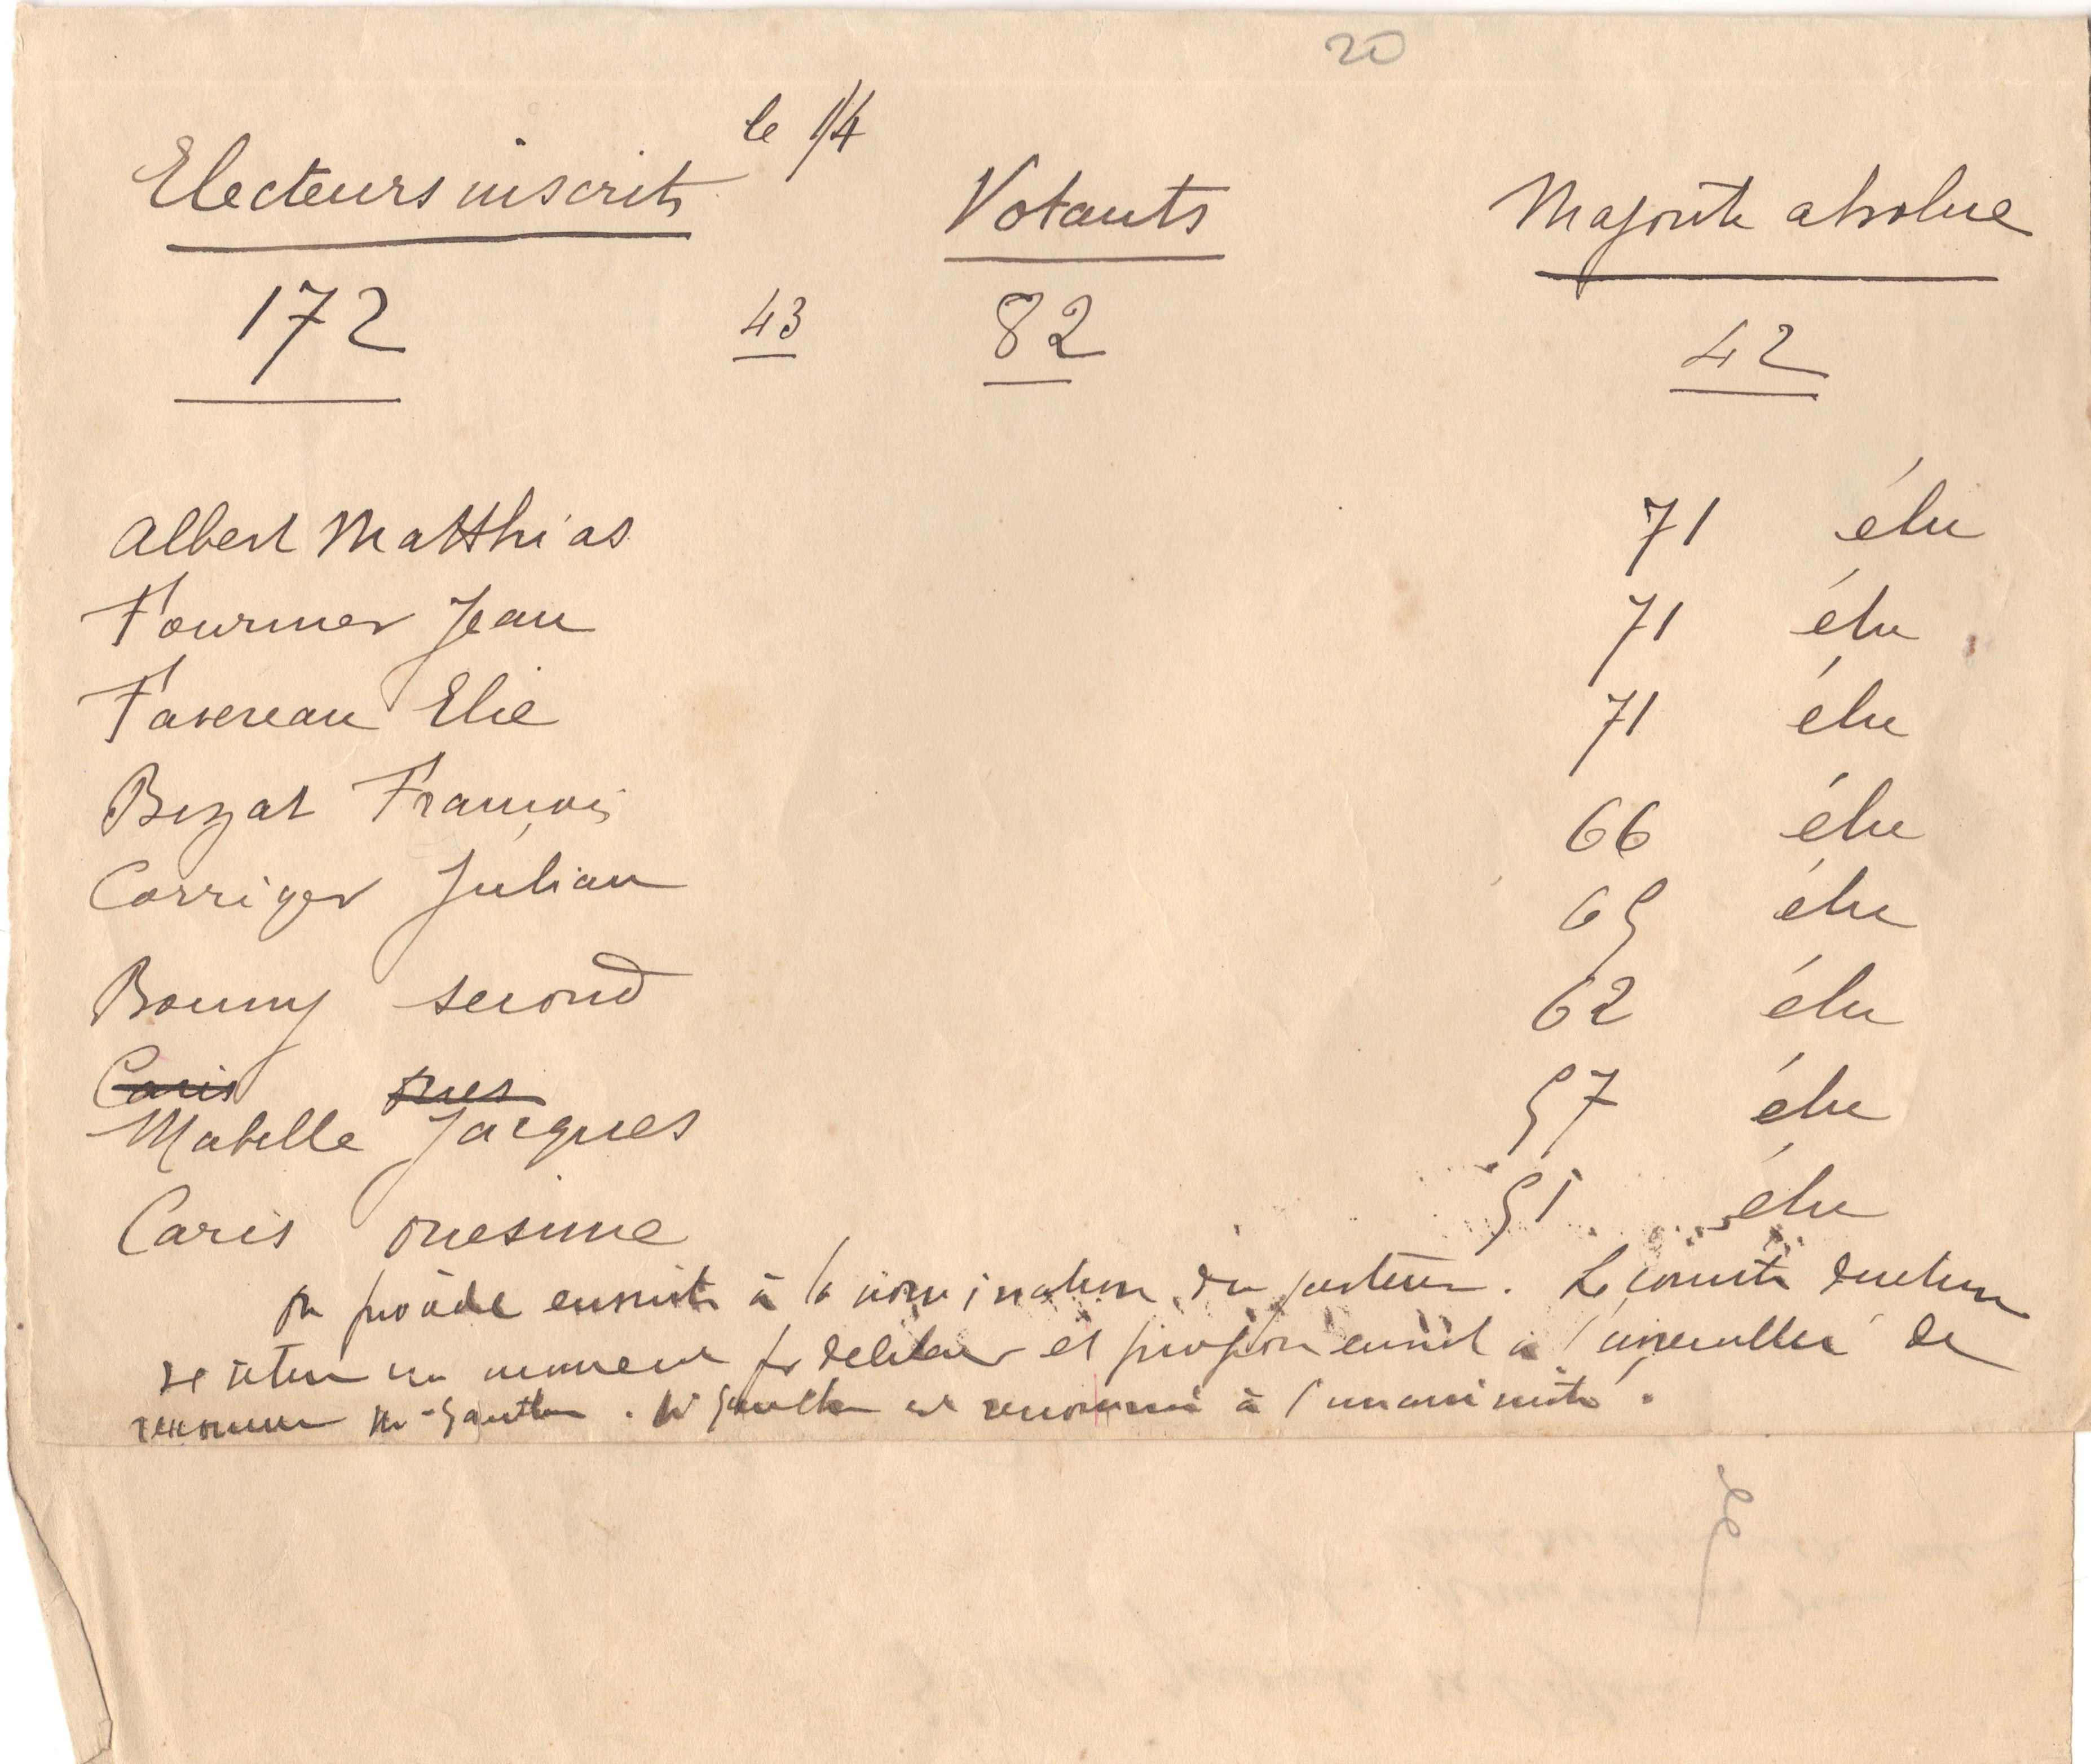 20
le 1/4
Electeurs inscrits Votants Majorité absolue
172 43 82 42
Albert Matthias 71 élu
Fournier Jean 71 élu
Favereau Elie 71 élu
Bizat François 66 élu
Corriger Julian 65 élu
Bouny second 62 élu
Caris ones
Mabille Jacques 57 élu
Caris onesime 51 élu
On procède ensuite à la nomination du pasteur. Le comité directeur
se retire un moment pr deliberer et propose ensuite à l'assemblée de
renommer Mr Gauthier. Mr Gauthier est renommé à l'unanimité.